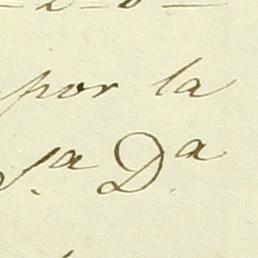 por la
S.ª D.ª